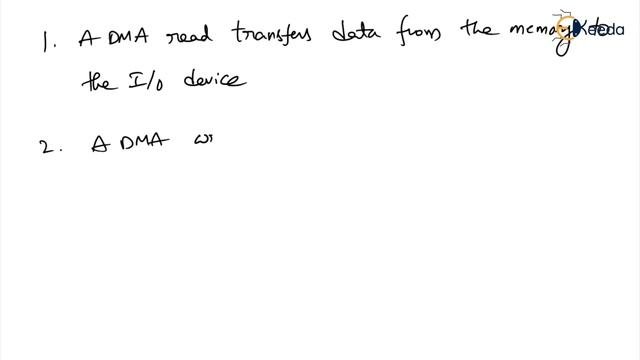 1. A DMA read transfers data from the memory to
the I/o device
2. A DMA w